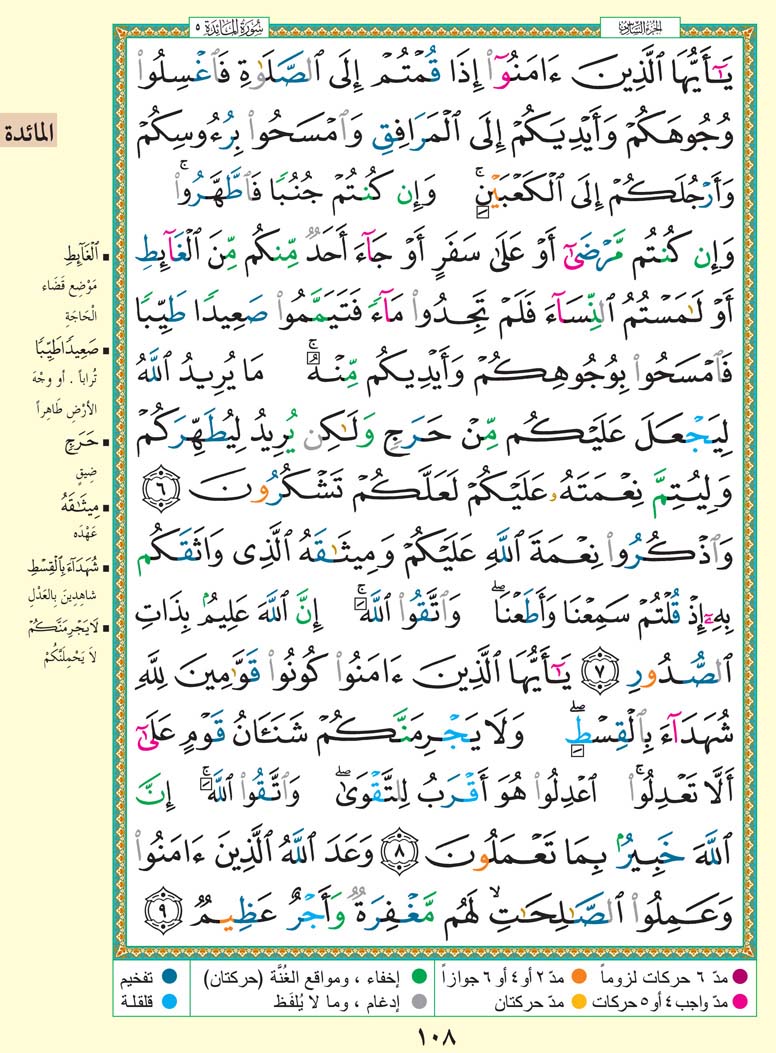 سُورَةُ المَائدة ٥
الجزء السادس
يَـٰٓأَيُّهَا ٱلَّذِينَ ءَامَنُوٓا۟ إِذَا قُمْتُمْ إِلَى ٱلصَّلَوٰةِ فَٱغْسِلُوا۟
وُجُوهَكُمْ وَأَيْدِيَكُمْ إِلَى ٱلْمَرَافِقِ وَٱمْسَحُوا۟ بِرُءُوسِكُمْ
وَأَرْجُلَكُمْ إِلَى ٱلْكَعْبَيْنِ ۚ وَإِن كُنتُمْ جُنُبًا فَٱطَّهَّرُوا۟ ۚ
وَإِن كُنتُم مَّرْضَىٰٓ أَوْ عَلَىٰ سَفَرٍ أَوْ جَآءَ أَحَدٌ مِّنكُم مِّنَ ٱلْغَآئِطِ
أَوْ لَـٰمَسْتُمُ ٱلنِّسَآءَ فَلَمْ تَجِدُوا۟ مَآءً فَتَيَمَّمُوا۟ صَعِيدًا طَيِّبًا
فَٱمْسَحُوا۟ بِوُجُوهِكُمْ وَأَيْدِيكُم مِّنْهُ ۚ مَا يُرِيدُ ٱللَّهُ
لِيَجْعَلَ عَلَيْكُم مِّنْ حَرَجٍ وَلَـٰكِن يُرِيدُ لِيُطَهِّرَكُمْ
وَلِيُتِمَّ نِعْمَتَهُۥ عَلَيْكُمْ لَعَلَّكُمْ تَشْكُرُونَ ٦
وَٱذْكُرُوا۟ نِعْمَةَ ٱللَّهِ عَلَيْكُمْ وَمِيثَـٰقَهُ ٱلَّذِى وَاثَقَكُم
بِهِۦٓ إِذْ قُلْتُمْ سَمِعْنَا وَأَطَعْنَا ۖ وَٱتَّقُوا۟ ٱللَّهَ ۚ إِنَّ ٱللَّهَ عَلِيمٌۢ بِذَاتِ
ٱلصُّدُورِ ٧ يَـٰٓأَيُّهَا ٱلَّذِينَ ءَامَنُوا۟ كُونُوا۟ قَوَّٰمِينَ لِلَّهِ
شُهَدَآءَ بِٱلْقِسْطِ ۖ وَلَا يَجْرِمَنَّكُمْ شَنَـَٔانُ قَوْمٍ عَلَىٰٓ
أَلَّا تَعْدِلُوا۟ ۚ ٱعْدِلُوا۟ هُوَ أَقْرَبُ لِلتَّقْوَىٰ ۖ وَٱتَّقُوا۟ ٱللَّهَ ۚ إِنَّ
ٱللَّهَ خَبِيرٌۢ بِمَا تَعْمَلُونَ ٨ وَعَدَ ٱللَّهُ ٱلَّذِينَ ءَامَنُوا۟
وَعَمِلُوا۟ ٱلصَّـٰلِحَـٰتِ ۙ لَهُم مَّغْفِرَةٌ وَأَجْرٌ عَظِيمٌ ٩
المائدة
ٱلْغَآئِطِ
مَوْضِعِ قَضَاء
الْحَاجَةِ
صَعِيدًا طَيِّبًا
تُراباً . أو وجْهَ
الأَرْضِ طَاهِراً
حَرَجٍ
ضِيقٍ
مِيثَـٰقَهُ
عَهْدَه
شُهَدَآءَ بِٱلْقِسْطِ
شاهِدِينَ بالعَدْلِ
لَا يَجْرِمَنَّكُمْ
لاَ يَحْمِلَنَّكُمْ
مدّ ٦ حركات لزوماً
مدّ ٢ أو ٤ أو ٦ جوازاً
إخفاء ، ومواقع الغُنَّة (حركتان)
تفخيم
مدّ واجب ٤ أو ٥ حركات
مدّ حركتان
إدغام ، وما لا يُلفَظ
قلقلة
١٠٨